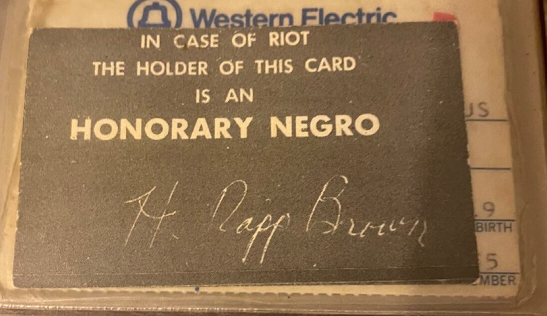 Western Electric
IN CASE OF RIOT
THE HOLDER OF THIS CARD
IS AN
HONORARY NEGRO
H. Rapp Brown
US
9
BIRTH
5
MBER